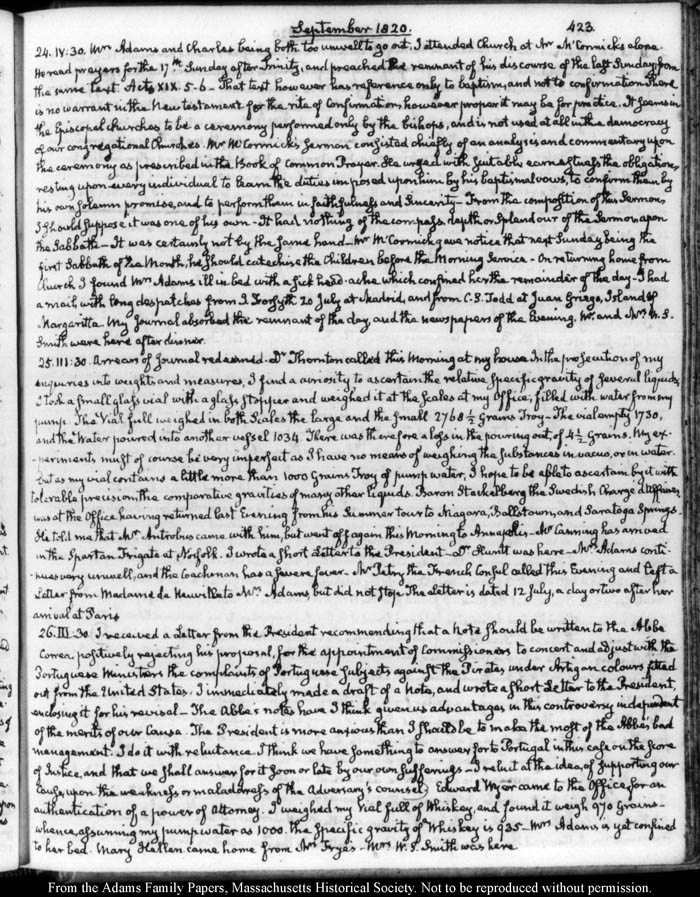 September 1820.
423.
24. IV:30. Mrs Adams and Charles being both too unwell to go out, I attended Church at Mr McCormick's alone.
He read prayers for the 17th Sunday after Trinity, and preached the remnant of his discourse of the last Sunday, from
the same text. Acts XIX. 5-6 - That text however has reference only to baptism, and not to confirmation. There
is no warrant in the New testament for the rite of Confirmation, however proper it may be for practice. It seems in
the Episcopal churches to be a ceremony performed only by the bishops, and is not used at all in the democracy
of our congregational Churches. Mr McCormick's Sermon consisted chiefly of an analysis and commentary upon
the ceremony as prescribed in the Book of Common Prayer. He urged with suitable earnestness the obligation,
resting upon every individual to learn the duties imposed upon him by his baptismal vows, to confirm them by
his own solemn promise, and to perform them in faithfulness and Sincerity - From the composition of this Sermon,
I should suppose it was one of his own - It had nothing of the compass, depth or splendour of the Sermon upon
the Sabbath - It was certainly not by the same hand - Mr McCormick gave notice that next Sunday being the
first Sabbath of the Month, he should catechise the Children before the Morning Service - On returning home from
Church I found Mrs Adams ill in bed with a sick head-ache which confined her the remainder of the day - I had
a mail with long despatches from J. Forsyth 20 July at Madrid, and from C. S. Todd at Juan Griego, Island of
Margaritta. My Journal absorbed the remnant of the day, and the newspapers of the Evening. Mr. and Mrs W. S.
Smith were here after dinner.
25. III:30. Arrears of Journal redeemed. Dr Thornton called this Morning at my house. In the prosecution of my
enquiries into weights and measures, I find a curiosity to ascertain the relative specific gravity of several liquids;
I took a small glass vial with a glass stopper and weighed it at the Scales at my Office; filled with water from my
pump. The Vial full weighed in both Scales the large and the small 2768½ Grains Troy - The vial empty 1730,
and the Water poured into another vessel 1034. There was therefore a loss in the pouring out, of 4½ Grains. My ex-
periments must of course be very imperfect as I have no means of weighing the substances in vacuo, or in water.
but as my vial contains a little more than 1000 Grains Troy of pump water, I hope to be able to ascertain by it with
tolerable precision the comparative gravities of many other liquids. Baron Stackelberg the Swedish Chargé d'Affaires,
was at the Office having returned last Evening from his Summer tour to Niagara, Ballstown, and Saratoga Springs.
He told me that Mr Antrobus came with him, but went off again this Morning to Annapolis - Mr Canning has arrived
in the Spartan Frigate at Norfolk. I wrote a short Letter to the President - Dr Hunt was here - Mrs Adams conti-
nues very unwell, and the Coachman has a severe fever - Mr Petry the French Consul called this Evening and left a
Letter from Madame de Neuville to Mrs Adams, but did not stop. The Letter is dated 12 July, a day or two after her
arrival at Paris.
26. III.30. I received a Letter from the President recommending that a note should be written to the Abbe
Correa, positively rejecting his proposal, for the appointment of Commissioners to concert and adjust with the
Portuguese Ministers the complaints of Portuguese Subjects against the Pirates, under Artigan colours fitted
out from the United States. I immediately made a draft of a note, and wrote a short Letter to the President,
enclosing it for his revisal - The Abbe's notes have I think given us advantages in this controversy independent
of the merits of our Cause. The President is more anxious than I should be to make the most of the Abbe's bad
management. I do it with reluctance. I think we have something to answer for to Portugal in this case on the score
of Justice, and that we shall answer for it soon or late by our own sufferings - I revolt at the idea, of supporting our
Cause, upon the weakness or maladdress of the Adversary's counsel. Edward Wyer came to the Office, for an
authentication of a power of Attorney. I weighed my vial full of Whiskey, and found it weigh 970 Grains -
whence, assuming my pump water as 1000. the specific gravity of Whiskey is 935 - Mrs Adams is yet confined
to her bed. Mary Hellen came home from Mrs Frye's - Mrs W. S. Smith was here
From the Adams Family Papers, Massachusetts Historical Society. Not to be reproduced without permission.